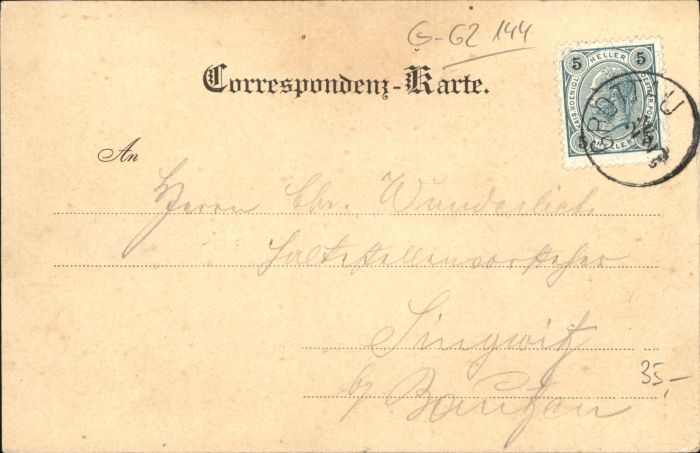 G-62 144
Correspondenz-Karte.
5 HELLER 5
5 HELLER 5
An
Herrn Chr. Wunderlich
Haltestellenvorsteher
Singwitz
b/ Bautzen
35,-